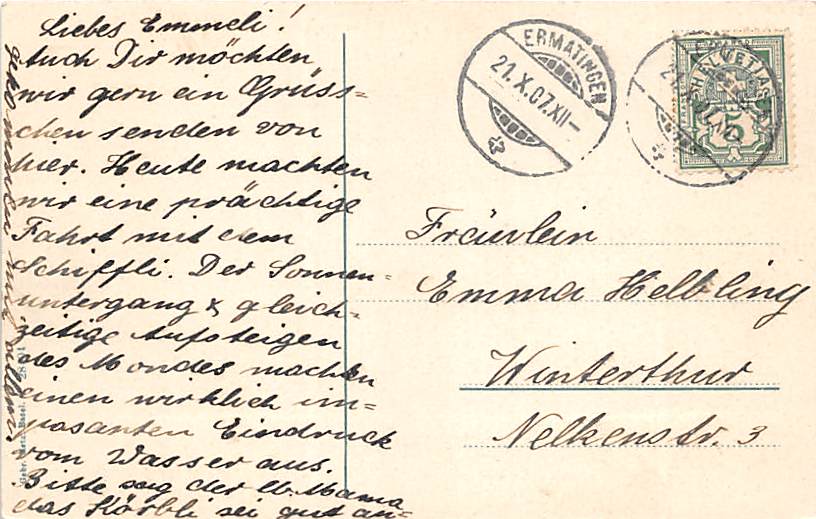 Liebes Emmeli!
Auch Dir möchten
wir gern ein Grüss-
chen senden von
hier. Heute machten
wir eine prächtige
Fahrt mit dem
Schiffli. Der Sonnen-
untergang & gleich-
zeitige Aufsteigen
des Mondes machten
einen wirklich im-
posanten Eindruck
vom Wasser aus.
Bitte sag der lb. Mama
das Körbli sei gut an-
ERMATINGEN
21.X.07.XII-
HELVETIA
5
Fräulein
Emma Helbling
Winterthur
Nelkenstr. 3
Gebr. Metz, Basel.